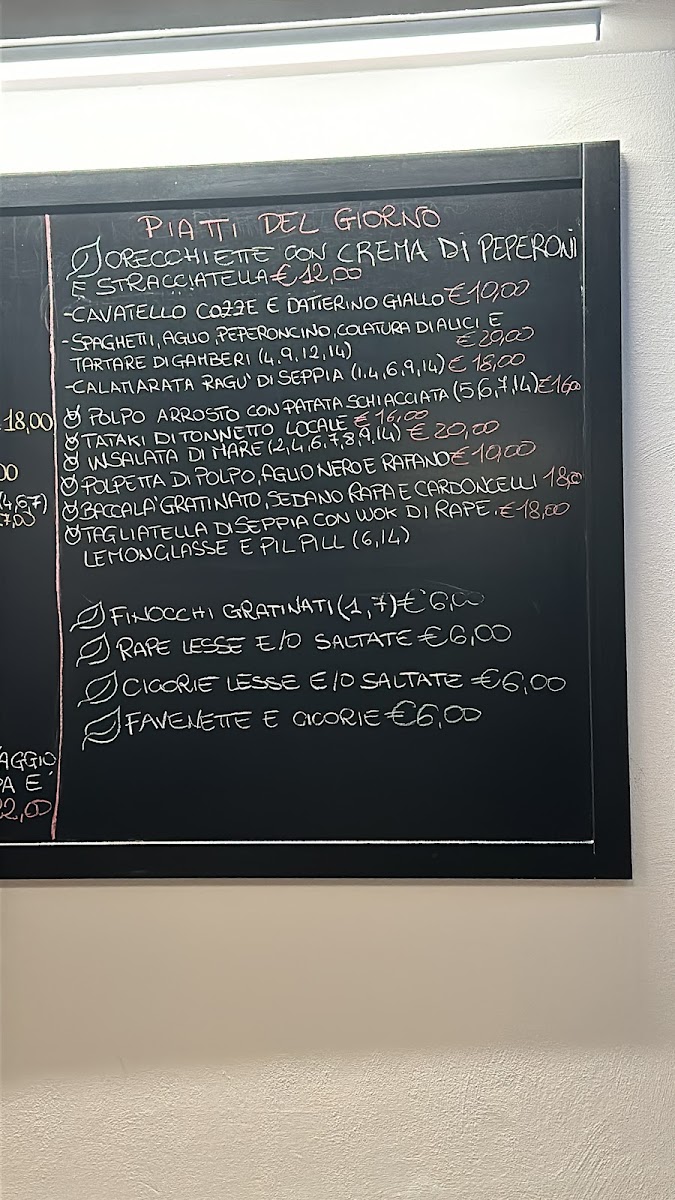 PIATTI DEL GIORNO
ORECCHIETTE CON CREMA DI PEPERONI
E STRACCIATELLA € 12,00
-CAVATELLO COZZE E DATTERINO GIALLO € 10,00
-SPAGHETTI, AGLIO, PEPERONCINO, COLATURA DI ALICI E
TARTARE DI GAMBERI (4.9,12,14) € 20,00
-CALAMARATA RAGU' DI SEPPIA (1.4,6.9,14) € 18,00
POLPO ARROSTO CON PATATA SCHIACCIATA (5 6,7,14) € 16,00
TATAKI DI TONNETTO LOCALE € 16,00
INSALATA DI MARE (2,4,6,7,8,9,14) € 20,00
POLPETTA DI POLPO, AGLIO NERO E RAFANO € 10,00
BACCALA' GRATINATO, SEDANO RAPA E CARDONCELLI 18,00
TAGLIATELLA DI SEPPIA CON WOK DI RAPE. € 18,00
LEMONGLASSE E PIL PILL (6,14)
FINOCCHI GRATINATI (1,7) € 6,00
RAPE LESSE E/O SALTATE € 6,00
CICORIE LESSE E/O SALTATE € 6,00
FAVENETTE E CICORIE € 6,00
18,00
00
(4,6,7)
7,00
AGGIO
PA E'
22,00